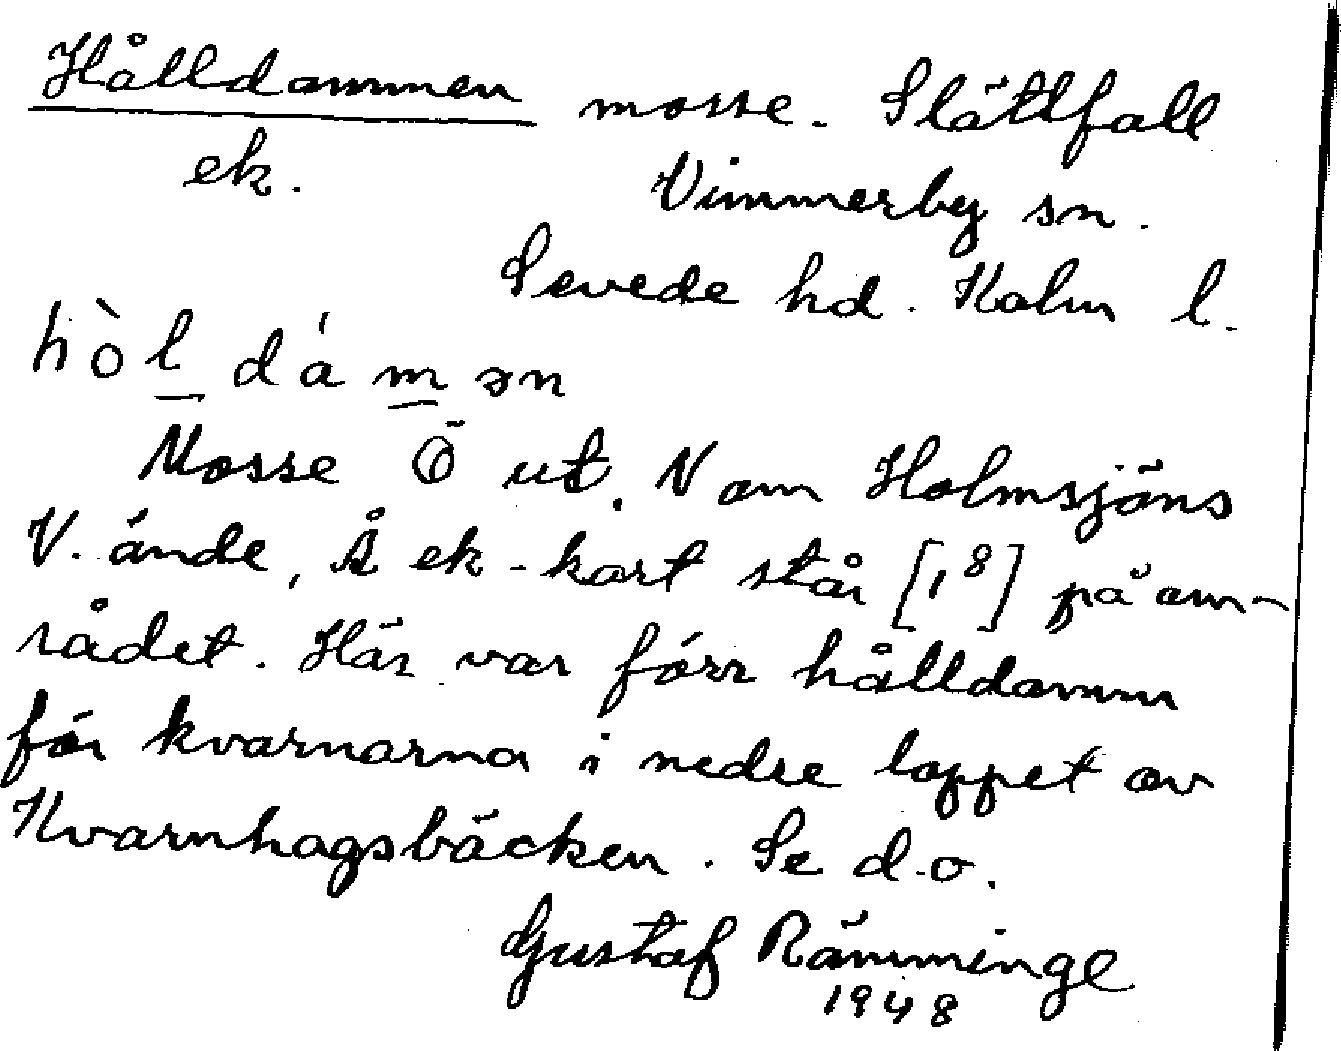 Hålldammen mosse. Slättfall
ek. Vimmerby sn.
Sevede hd. Kalm l.
hòl dá m ən
Mosse Ö ut. N om Holmsjöns
V. ände, Å ek-kart står [18] på om-
rådet. Här var förr hålldamm
för kvarnarna i nedre loppet av
Kvarnhagsbäcken. Se d.o.
Gustaf Rämminge
1948